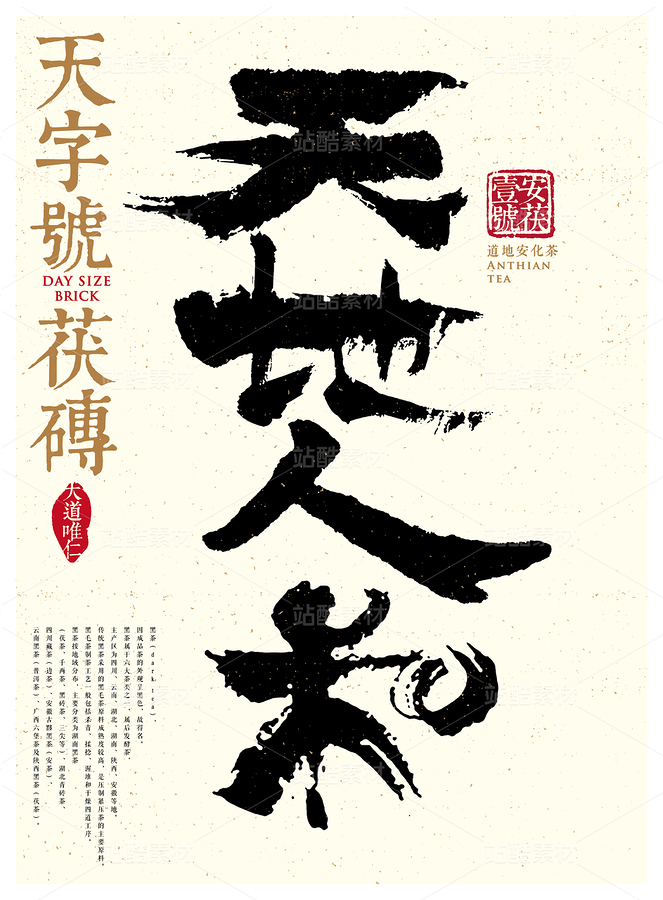 天字號
DAY SIZE
BRICK
茯磚
大道唯仁
天地人和
安茯
壹號
道地安化茶
ANTHIAN
TEA
黑茶(dark tea),
因成品茶的外观呈黑色,故得名。
黑茶属于六大茶类之一,属后发酵茶,
主产区为四川、云南、湖北、湖南、陕西、安徽等地。
传统黑茶采用的黑毛茶原料成熟度较高,是压制紧压茶的主要原料。
黑毛茶制茶工艺一般包括杀青、揉捻、渥堆和干燥四道工序。
黑茶按地域分布,主要分类为湖南黑茶
(茯茶、千两茶、黑砖茶、三尖等)、湖北青砖茶、
四川藏茶(边茶)、安徽古黟黑茶(安茶)、
云南黑茶(普洱茶)、广西六堡茶及陕西黑茶(茯茶)。
站酷素材